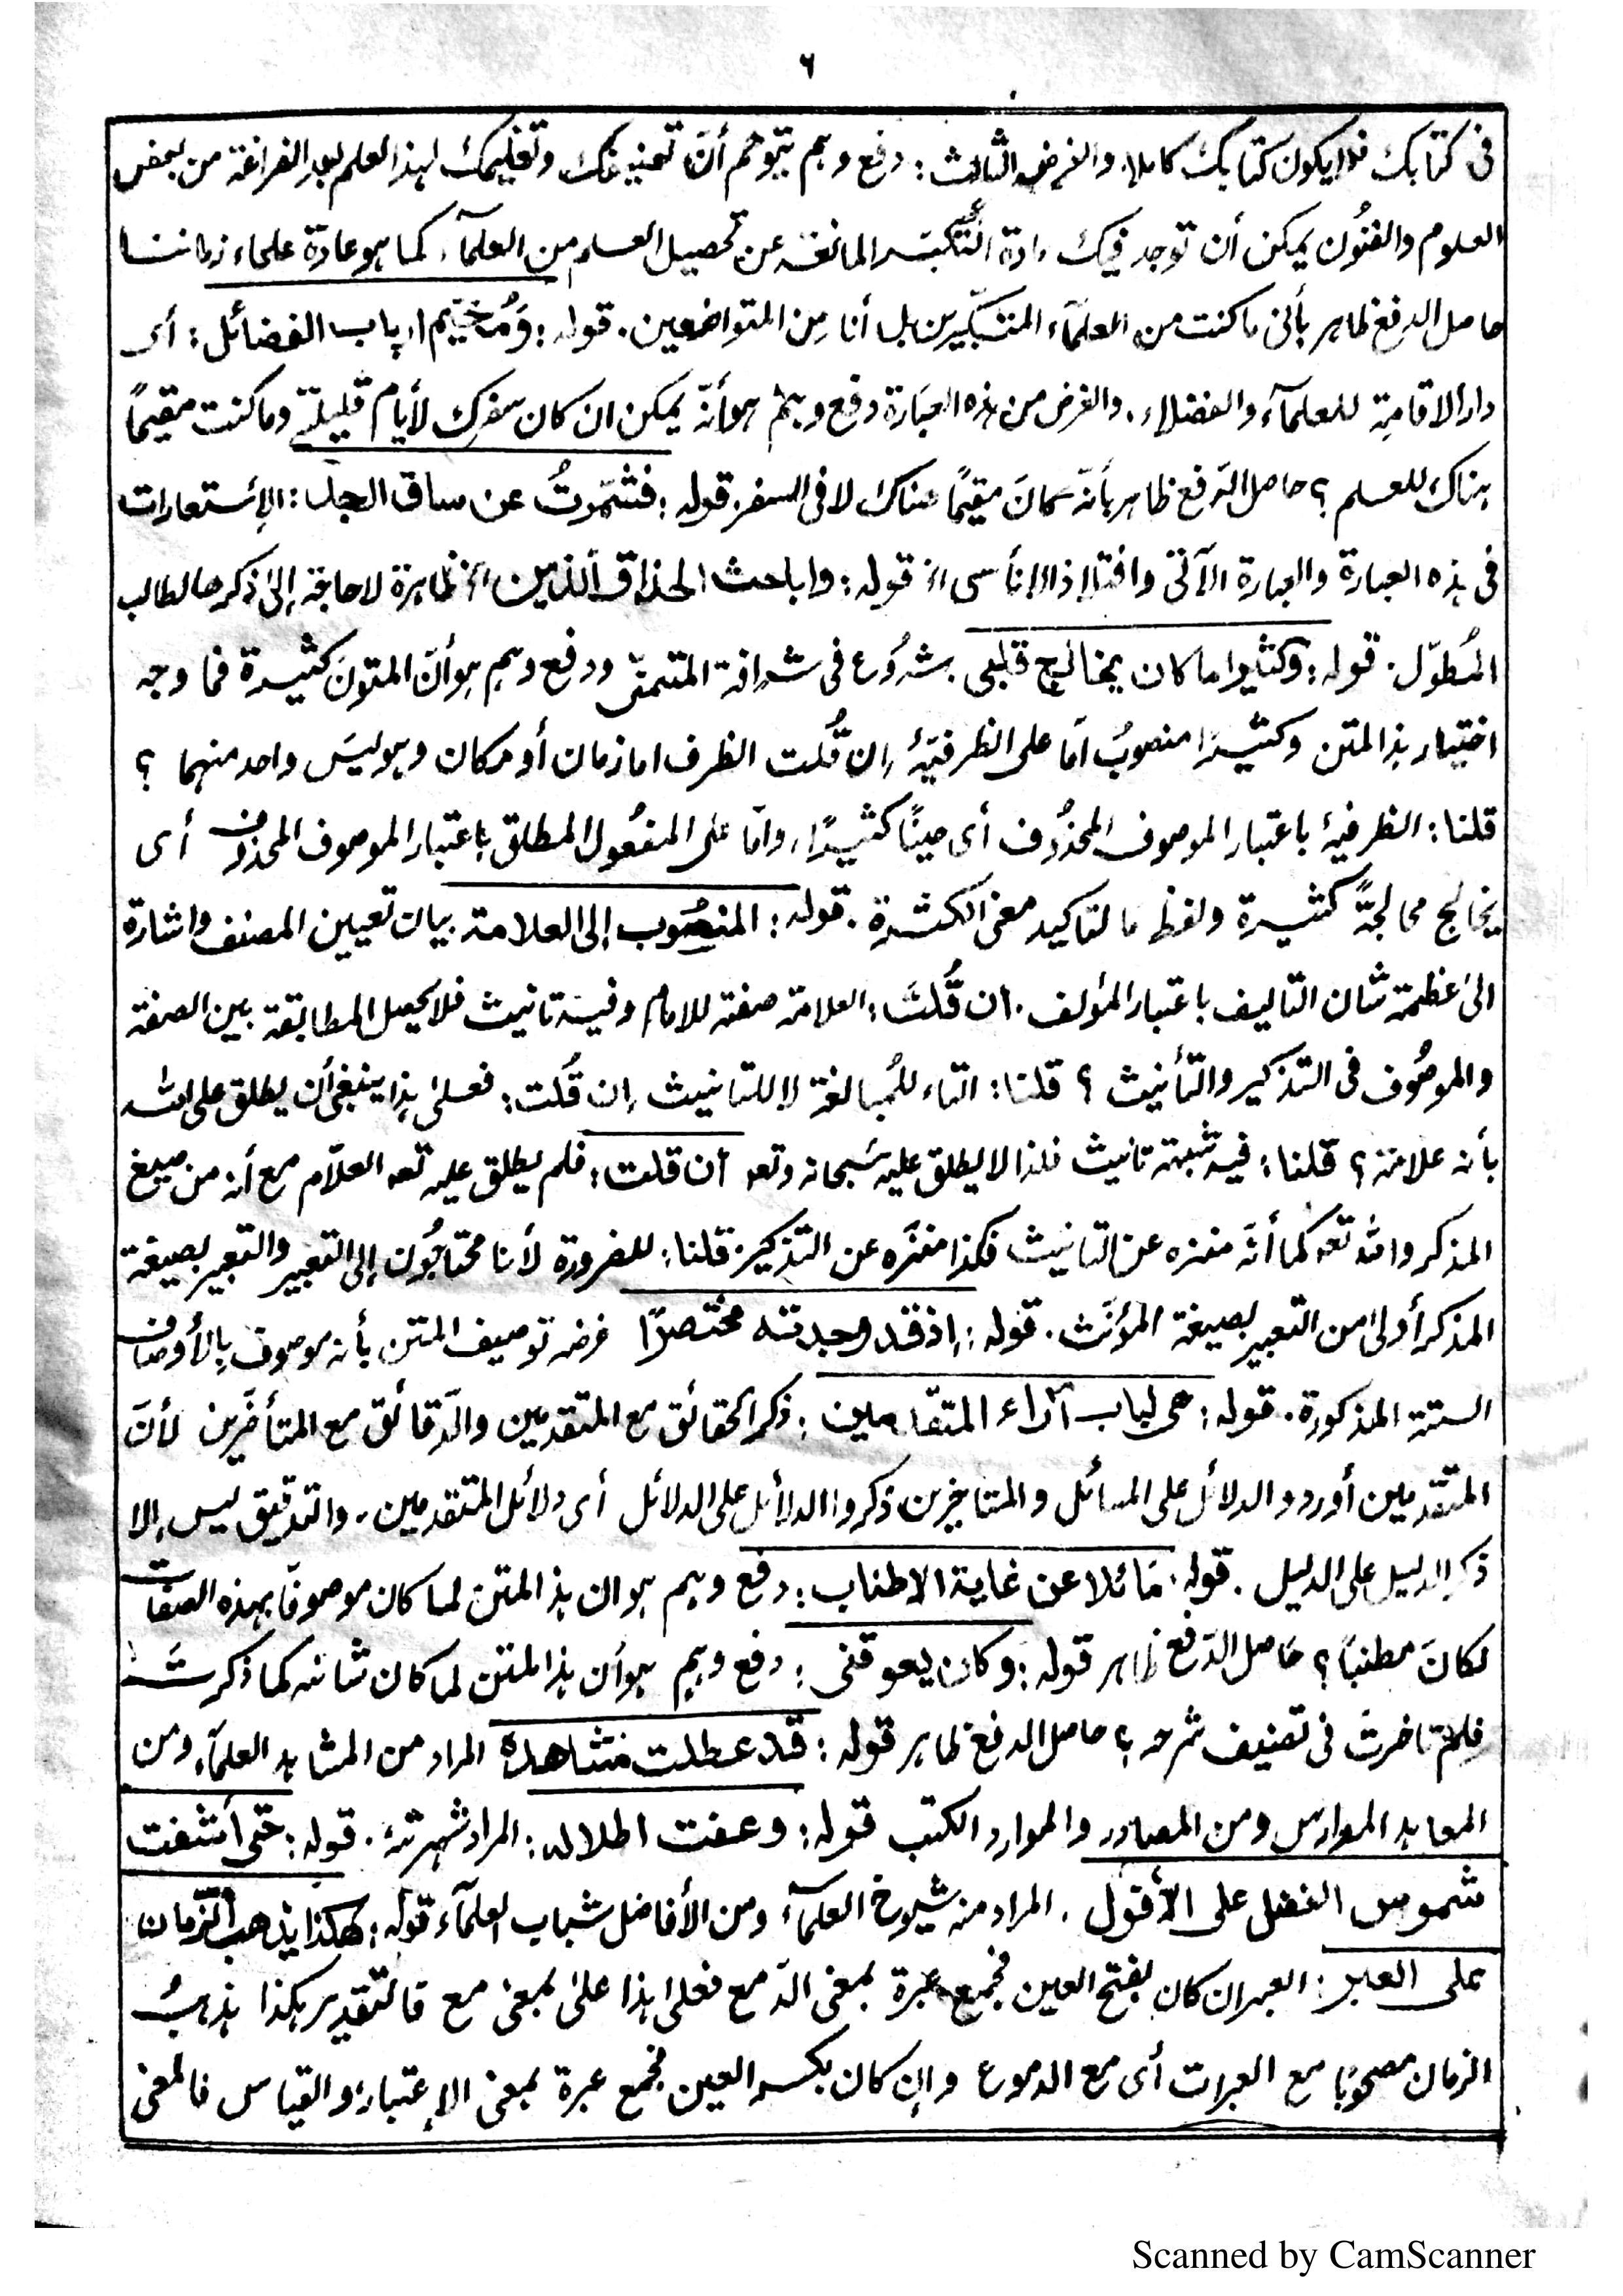 ٦
فى كتابك فلا يكون كتابك كاملا. والغرض الثالث: دفع وهم يتوهم أنّ تصنيفك وتعليمك لهذا العلم بعد الفراغة من بعض
العلوم والفنُون يمكن أن توجد فيك مادة التكبّر المانعة عن تحصيل العلم من العلمآء كما هو عادة علماء زماننا
حاصل الدفع ظاهر بأنى ما كنت من العلمآء المتكبّرين بل أنا مِن المتواضعين. قوله: وَمُخيّم ارباب الفضائل: أى
دار الاقامة للعلمآء والفضلاء. والغرض من هذه العبَارة دفع وهم هو أنّه يمكن ان كان سفرك لأيام قليلة وما كنت مقيمًا
هناك للعلم؟ حاصل الدّفع ظاهر بأنّه كانَ مقيمًا هناك لا فى السفر. قوله: فشمّرتُ عن ساق الجد: الإستعارات
فى هذه العبارة والعبارة الآتى واقتلاذ الاناسى الخ قوله: واباحث الحذاق الذين الخ ظاهرة لاحاجة إلى ذكرها لطالب
المُطوّل. قوله: وكثيرا ما كان يخالج قلبى شرُوع فى شرافة المتن ودفع وهم هو أنّ المتونَ كثيرة فما وجه
اختيار هذا المتن وكثيرًا منصوبٌ امّا على الظرفيّة إن قُلت الظرف اما زمان أو مكان وهو ليسَ واحد منهما؟
قلنا: الظرفية باعتبار الموصوف المحذُوف أى حينًا كثيرًا، وامّا على المفعُول المطلق باعتبار الموصوف المحذوف أى
يخالج مخالجةً كثيرة ولفظ ما لتاكيد معنى الكثرة. قوله: المنصُوب إلى العلامة بيان تعيين المصنف واشارة
الى عظمة شان التاليف باعتبار المؤلف. ان قُلتَ: العلامة صفة للامام وفيه تانيث فلا يحصل المطابقة بين الصفة
والموصُوف فى التذكير والتأنيث؟ قلنا: التاء للمُبالغة لا للتانيث إن قُلت: فعلى هذا ينبغى أن يطلق على الله
بأنه علامة؟ قلنا: فيه شبهة تانيث فلذا لا يطلق عليه سُبحانه وتعه ان قلت: فلم يطلق عليه تعه العلاّم مع أنه من صيغ
المذكر والله تعه كما أنّه منزه عن التانيث فكذا منزّه عن التذكير. قلنا: للضرورة لأنا محتاجُون إلى التعبير والتعبير بصيغة
المذكر أولى من التعبير بصيغة المؤنّث. قوله: إذ قد وجدته مختصرًا غرضه توصيف المتن بأنه موصوف بالأوصاف
الستة المذكورة. قوله: حى لباب آراء المتقدمين: ذكر الحقائق مع المتقدمين والدّقائق مع المتأخّرين لأنّ
المتقدمين أوردو الدلائل على المسائل والمتاخرين ذكروا الدلائل على الدلائل أى دلائل المتقدمين. والتدقيق ليس إلا
ذكر الدليل على الدليل. قوله: مَائلا عن غاية الاطناب: دفع وهم هو ان هذا المتن لما كان موصوفًا بهذه الصفات
لكانَ مطنبًا؟ حَاصل الدّفع ظاهر قوله: وكان يعوقنى: دفع وهم هو أن هذا المتن لما كان شانه كما ذكرتَ
فلم تاخرتَ فى تصنيف شرحه؟ حاصل الدفع ظاهر قوله: قد عطلت مشاهده المراد من المشاهد العلمآء ومن
المعاهد المدارس ومن المصادر والموارد الكتب قوله: وعفت اطلاله: المراد شهرته. قوله: حتى أشفت
شموس الفضل على الأفول. المراد منه شيوخ العلمآء ومن الأفاضل شباب العلمآء قوله: هكذا يذهب الزّمان
على العبر: العبر ان كان بفتح العين فجمع عبرة بمعنى الدّمع فعلى هذا على بمعنى مع فالتقدير هكذا يذهبُ
الزمان مصحوبًا مع العبرات أى مع الدموع وإن كان بكسر العين فجمع عبرة بمعنى الإعتبار والقياس فالمعنى
Scanned by CamScanner